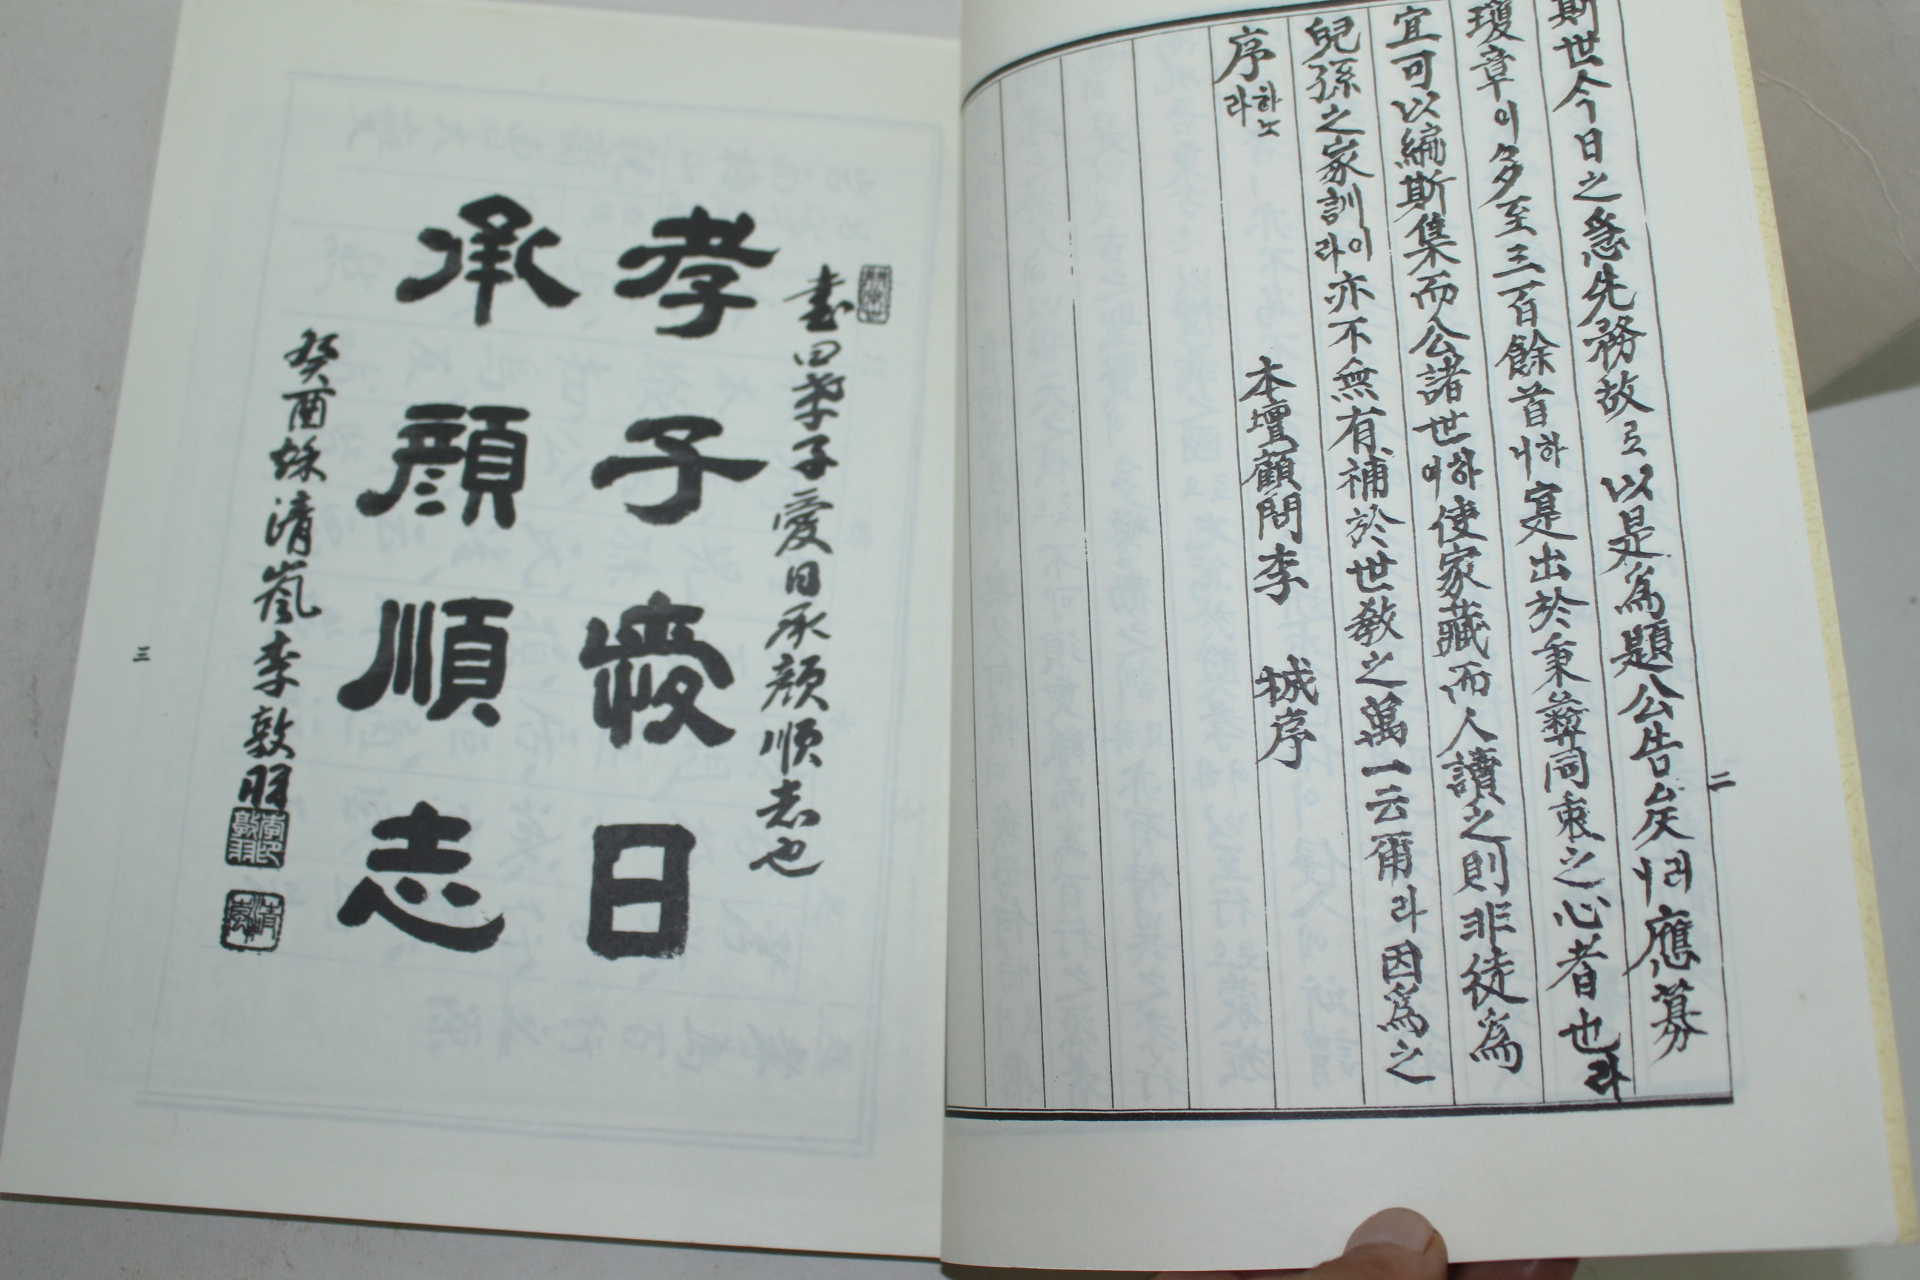 斯世今日之急先務故로以是爲題公告矣러니應募
瓊章이多至三百餘首하니寔出於秉彛同衷之心者也라
宜可以編斯集而公諸世하야使家藏而人讀之則非徒爲
兒孫之家訓이라亦不無有補於世敎之萬一云爾라因爲之
序하노라
本壇顧問李 城序
二
書曰孝子愛日承顔順志也
孝子愛日
承顔順志
癸酉 清嵐李敦羽
李敦羽印
三